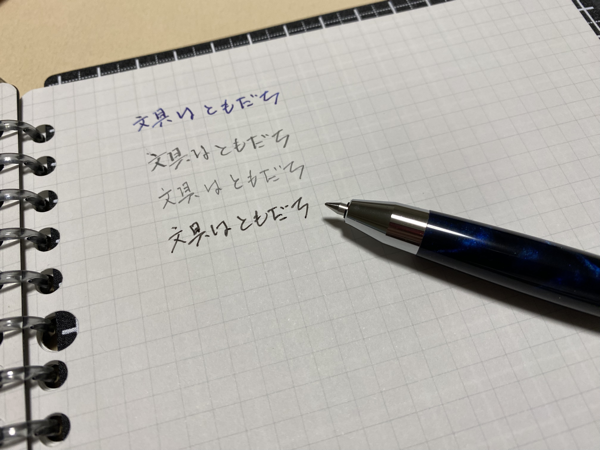 文具はともだち
文具はともだち
文具はともだち
文具はともだち